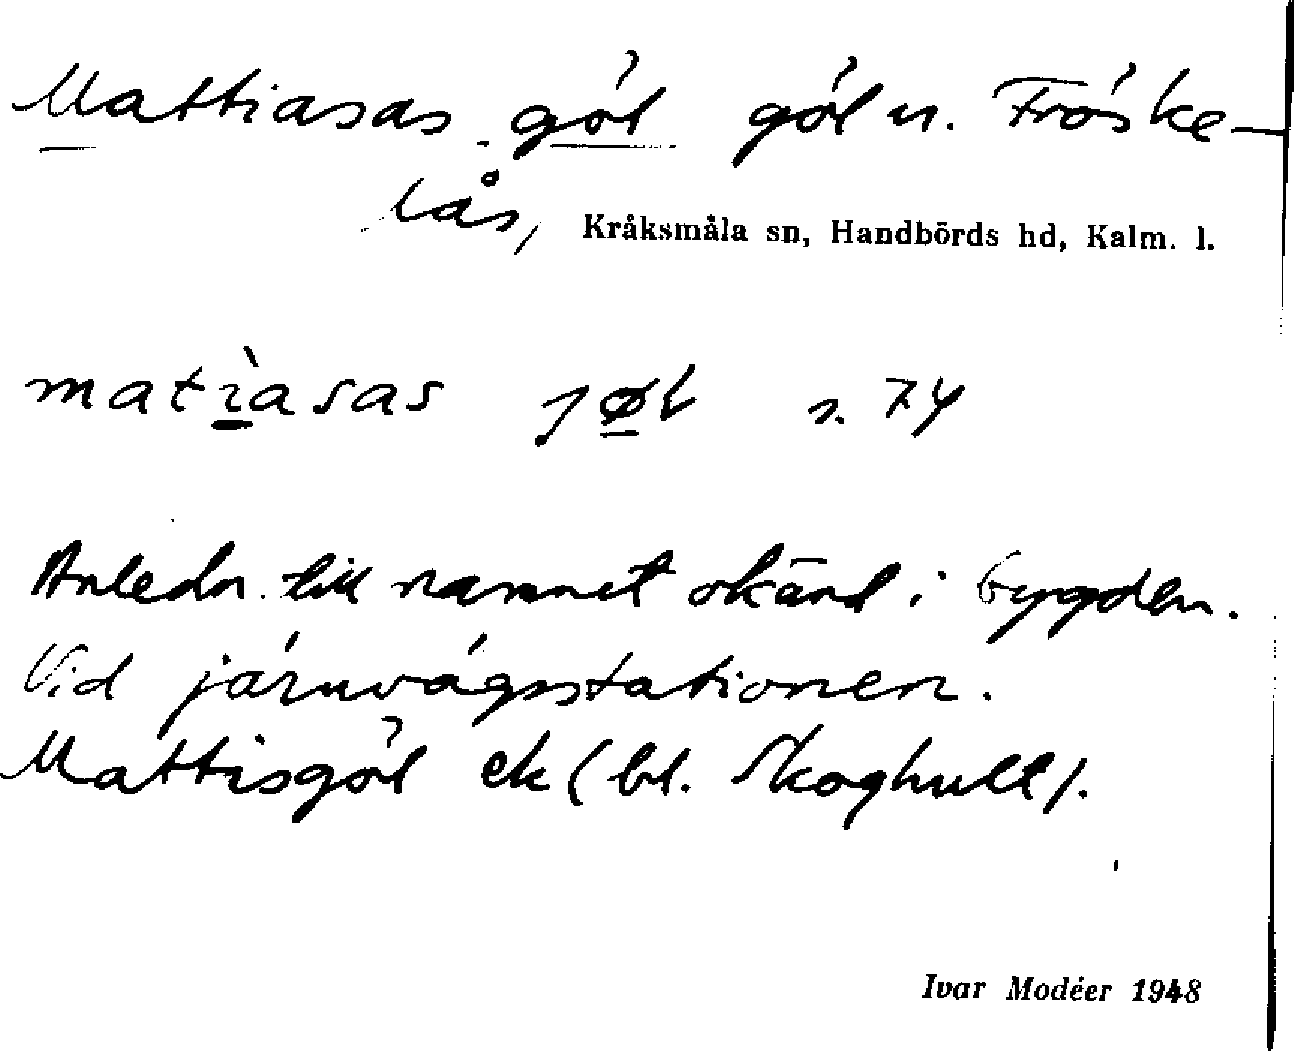 Mattiasas göl göl n. Fröske-
lås, Kråksmåla sn, Handbörds hd, Kalm. l.
matìasas jøl s. 74
Anledn. till namnet okänd i bygden.
Vid järnvägsstationen.
Mattisgöl ek (bl. Skoghult).
Ivar Modéer 1948